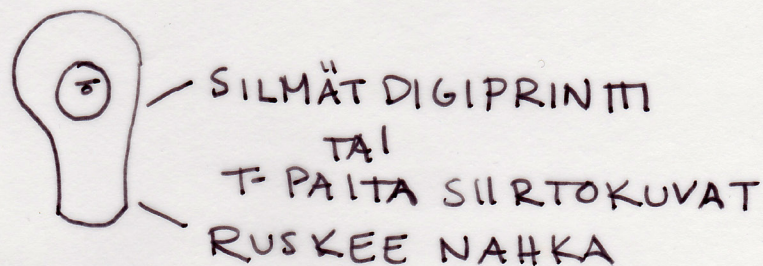 SILMÄT DIGIPRINTTI
TAI
T-PAITA SIIRTOKUVAT
RUSKEE NAHKA